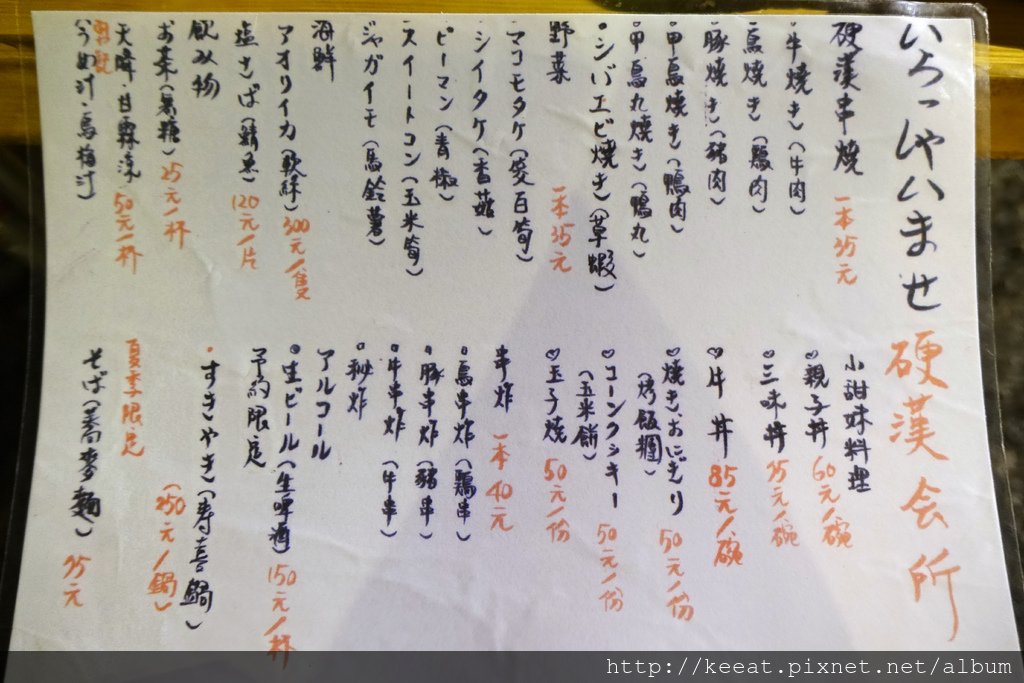 いらっしゃいませ 硬漢会所
硬漢串燒 一本35元
・牛焼き(牛肉)
鳥焼き(鷄肉)
・豚焼き(豬肉)
・甲鳥焼き(鴨肉)
・甲鳥丸焼き(鴨丸)
・シバエビ焼き(草蝦)
野菜 一本35元
マコモタケ(茭白筍)
シイタケ(香菇)
ピーマン(青椒)
スイートコン(玉米筍)
ジャガイモ(馬鈴薯)
海鮮
アオリイカ(軟絲) 300元/隻
塩さば(鯖魚) 120元/片
飲み物
お茶(無糖) 25元/杯
天降・甘霖涼 50元/杯
うめ汁・烏梅汁
小甜妹料理
♡親子丼 60元/碗
♡三味丼 75元/碗
♡牛丼 85元/碗
♡焼きおにぎり 50元/份
(烤飯糰)
♡コーンクッキー 50元/份
(玉米餅)
♡玉子焼 50元/份
串炸 一本40元
鳥串炸(鷄串)
・豚串炸(豬串)
・牛串炸(牛串)
秘炸
アルコール
・生ビール(生啤酒) 150元/杯
予約限定
・すきやき(寿喜鍋)
(250元/鍋)
夏季限定
そば(蕎麥麵) 75元
http://keeat.pixnet.net/album